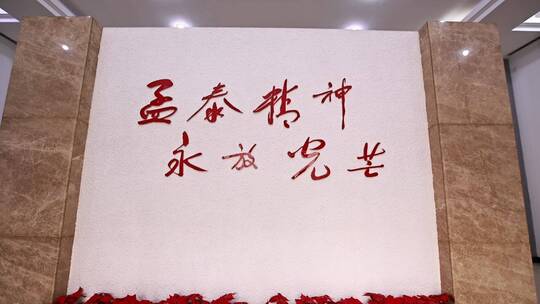 孟泰精神
永放光芒